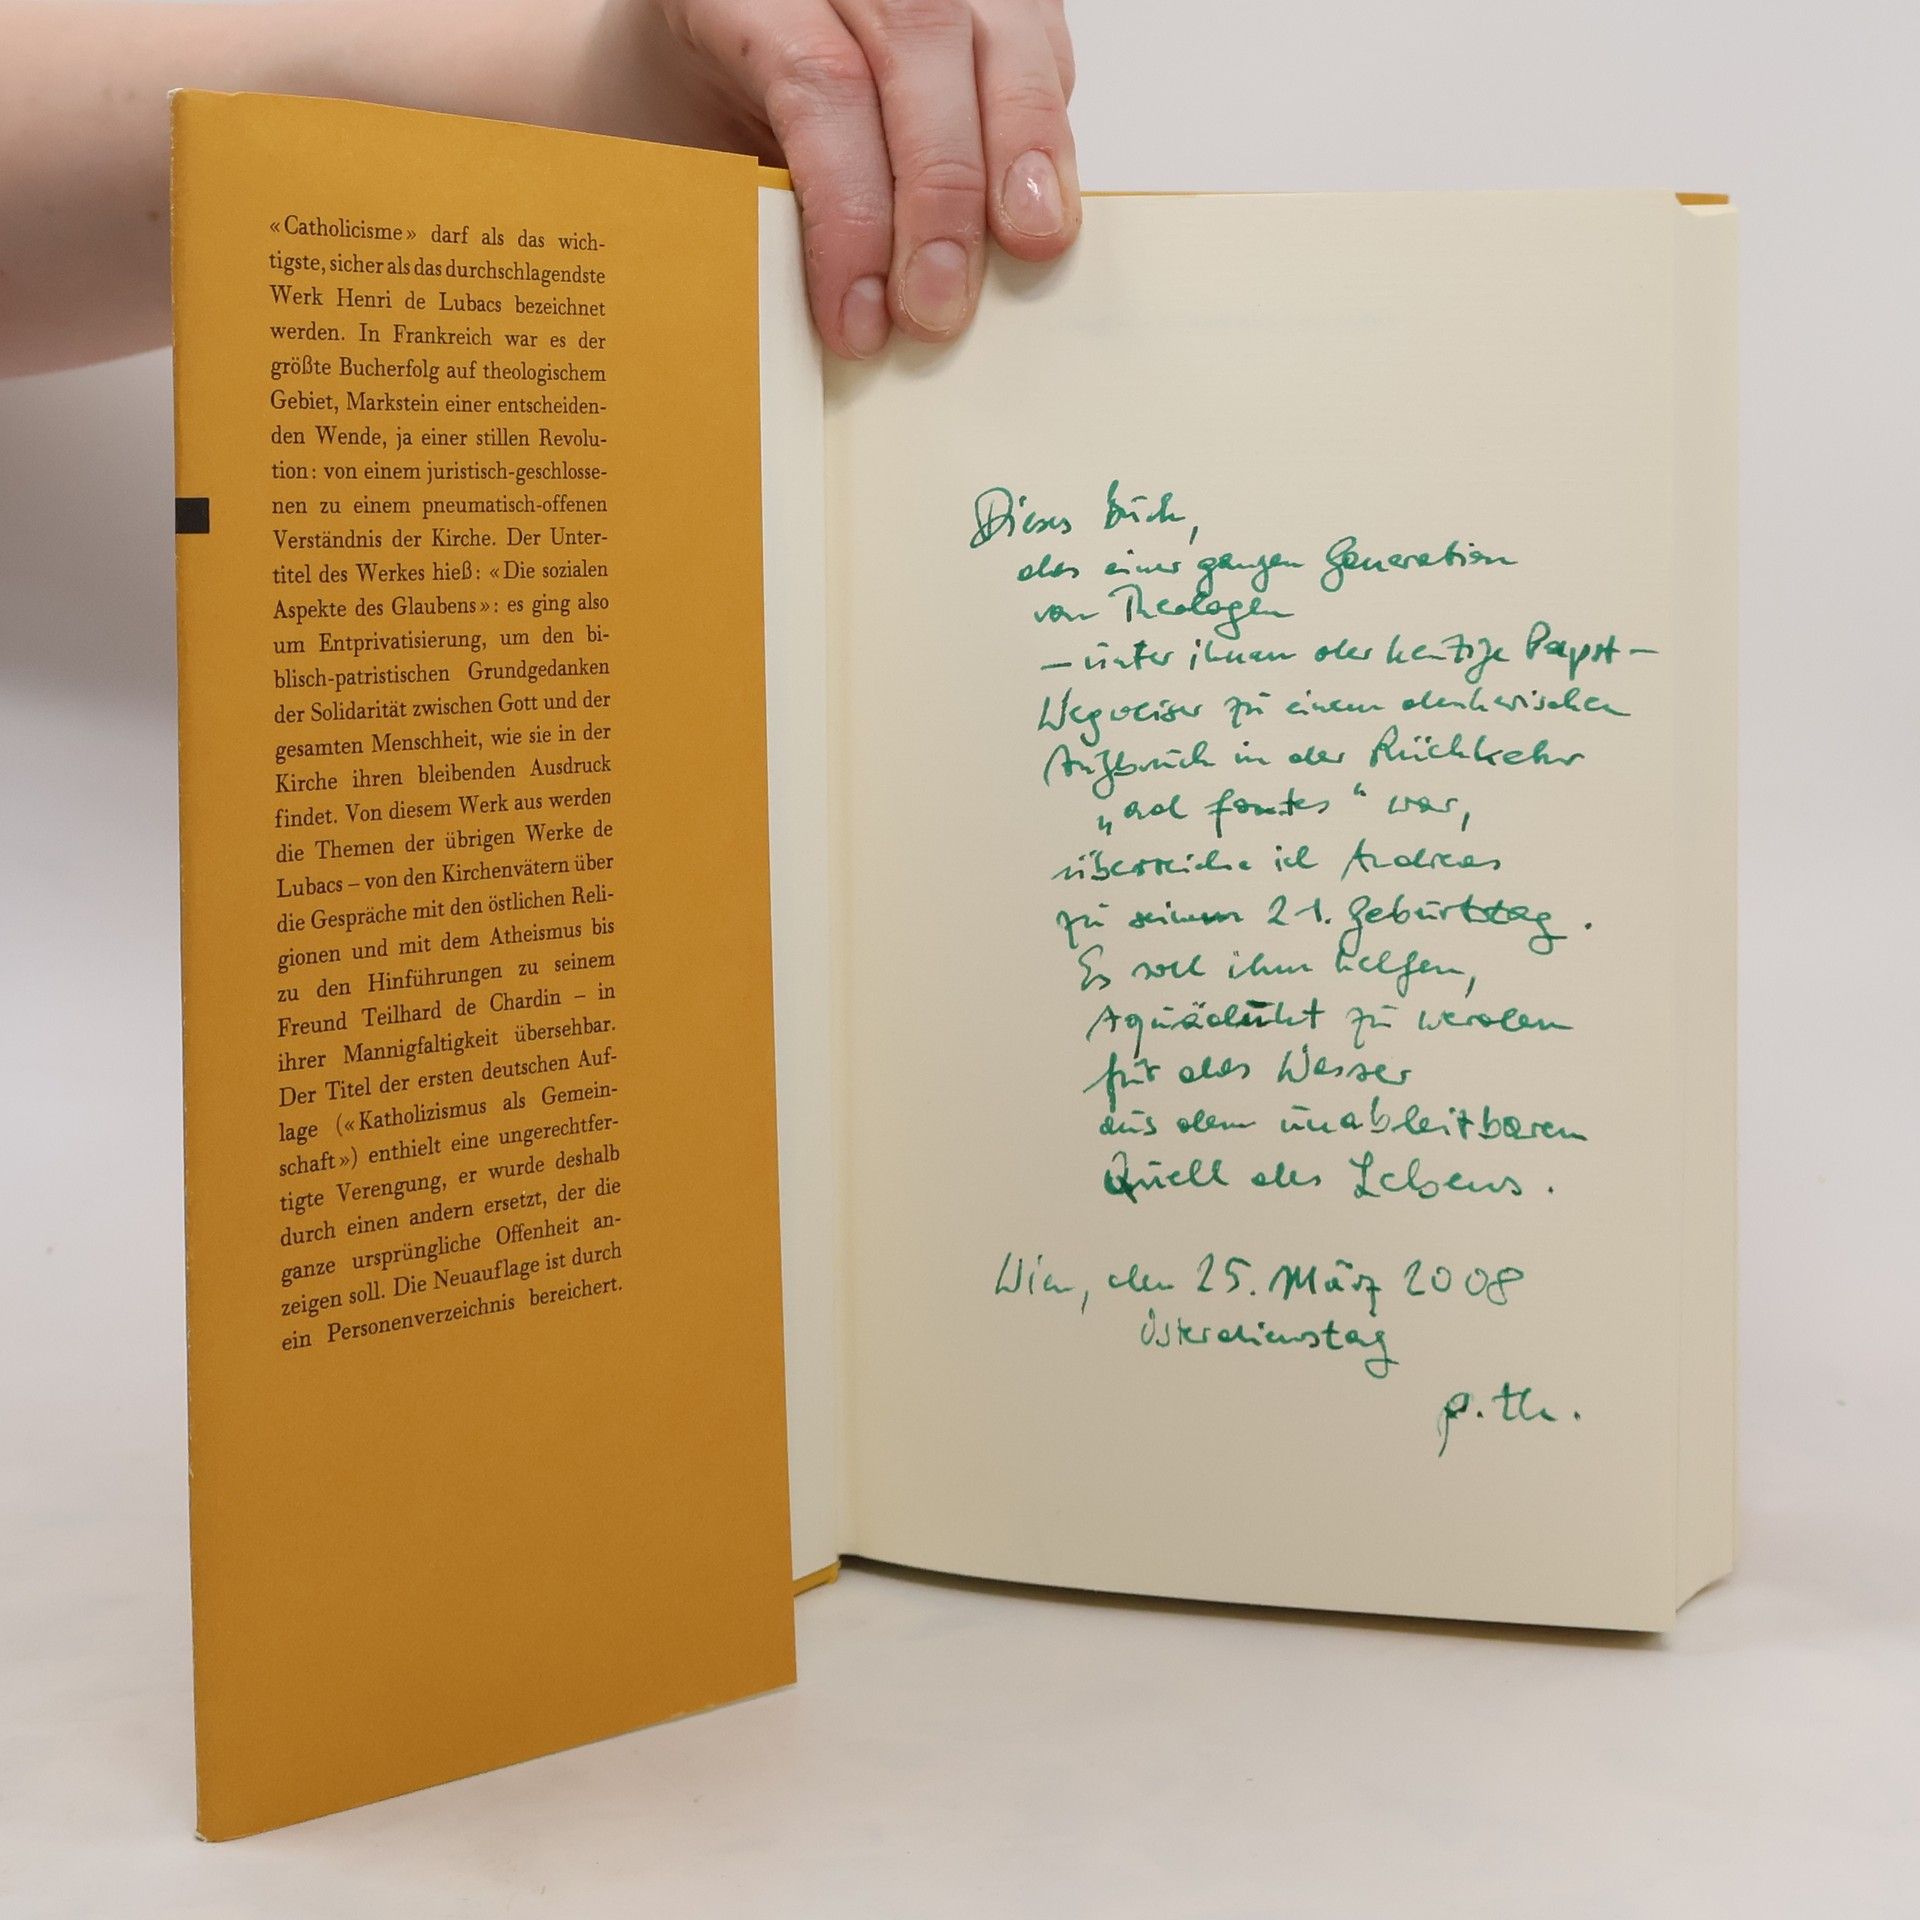 «Catholicisme» darf als das wich-
tigste, sicher als das durchschlagendste
Werk Henri de Lubacs bezeichnet
werden. In Frankreich war es der
größte Bucherfolg auf theologischem
Gebiet, Markstein einer entscheiden-
den Wende, ja einer stillen Revolu-
tion: von einem juristisch-geschlosse-
nen zu einem pneumatisch-offenen
Verständnis der Kirche. Der Unter-
titel des Werkes hieß: «Die sozialen
Aspekte des Glaubens»: es ging also
um Entprivatisierung, um den bi-
blisch-patristischen Grundgedanken
der Solidarität zwischen Gott und der
gesamten Menschheit, wie sie in der
Kirche ihren bleibenden Ausdruck
findet. Von diesem Werk aus werden
die Themen der übrigen Werke de
Lubacs – von den Kirchenvätern über
die Gespräche mit den östlichen Reli-
gionen und mit dem Atheismus bis
zu den Hinführungen zu seinem
Freund Teilhard de Chardin – in
ihrer Mannigfaltigkeit übersehbar.
Der Titel der ersten deutschen Auf-
lage («Katholizismus als Gemein-
schaft») enthielt eine ungerechtfer-
tigte Verengung, er wurde deshalb
durch einen andern ersetzt, der die
ganze ursprüngliche Offenheit an-
zeigen soll. Die Neuauflage ist durch
ein Personenverzeichnis bereichert.
Dieses Buch,
das einer ganzen Generation
von Theologen
– unter ihnen der heutige Papst –
Wegweiser zu einem denkerischen
Aufbruch in der Rückkehr
„ad fontes“ war,
überreiche ich Andreas
zu seinem 21. Geburtstag.
Es soll ihm helfen,
Aquädukt zu werden
für das Wasser
aus dem unableitbaren
Quell des Lebens.
Wien, den 25. März 2008
Osterdienstag
P. Th.